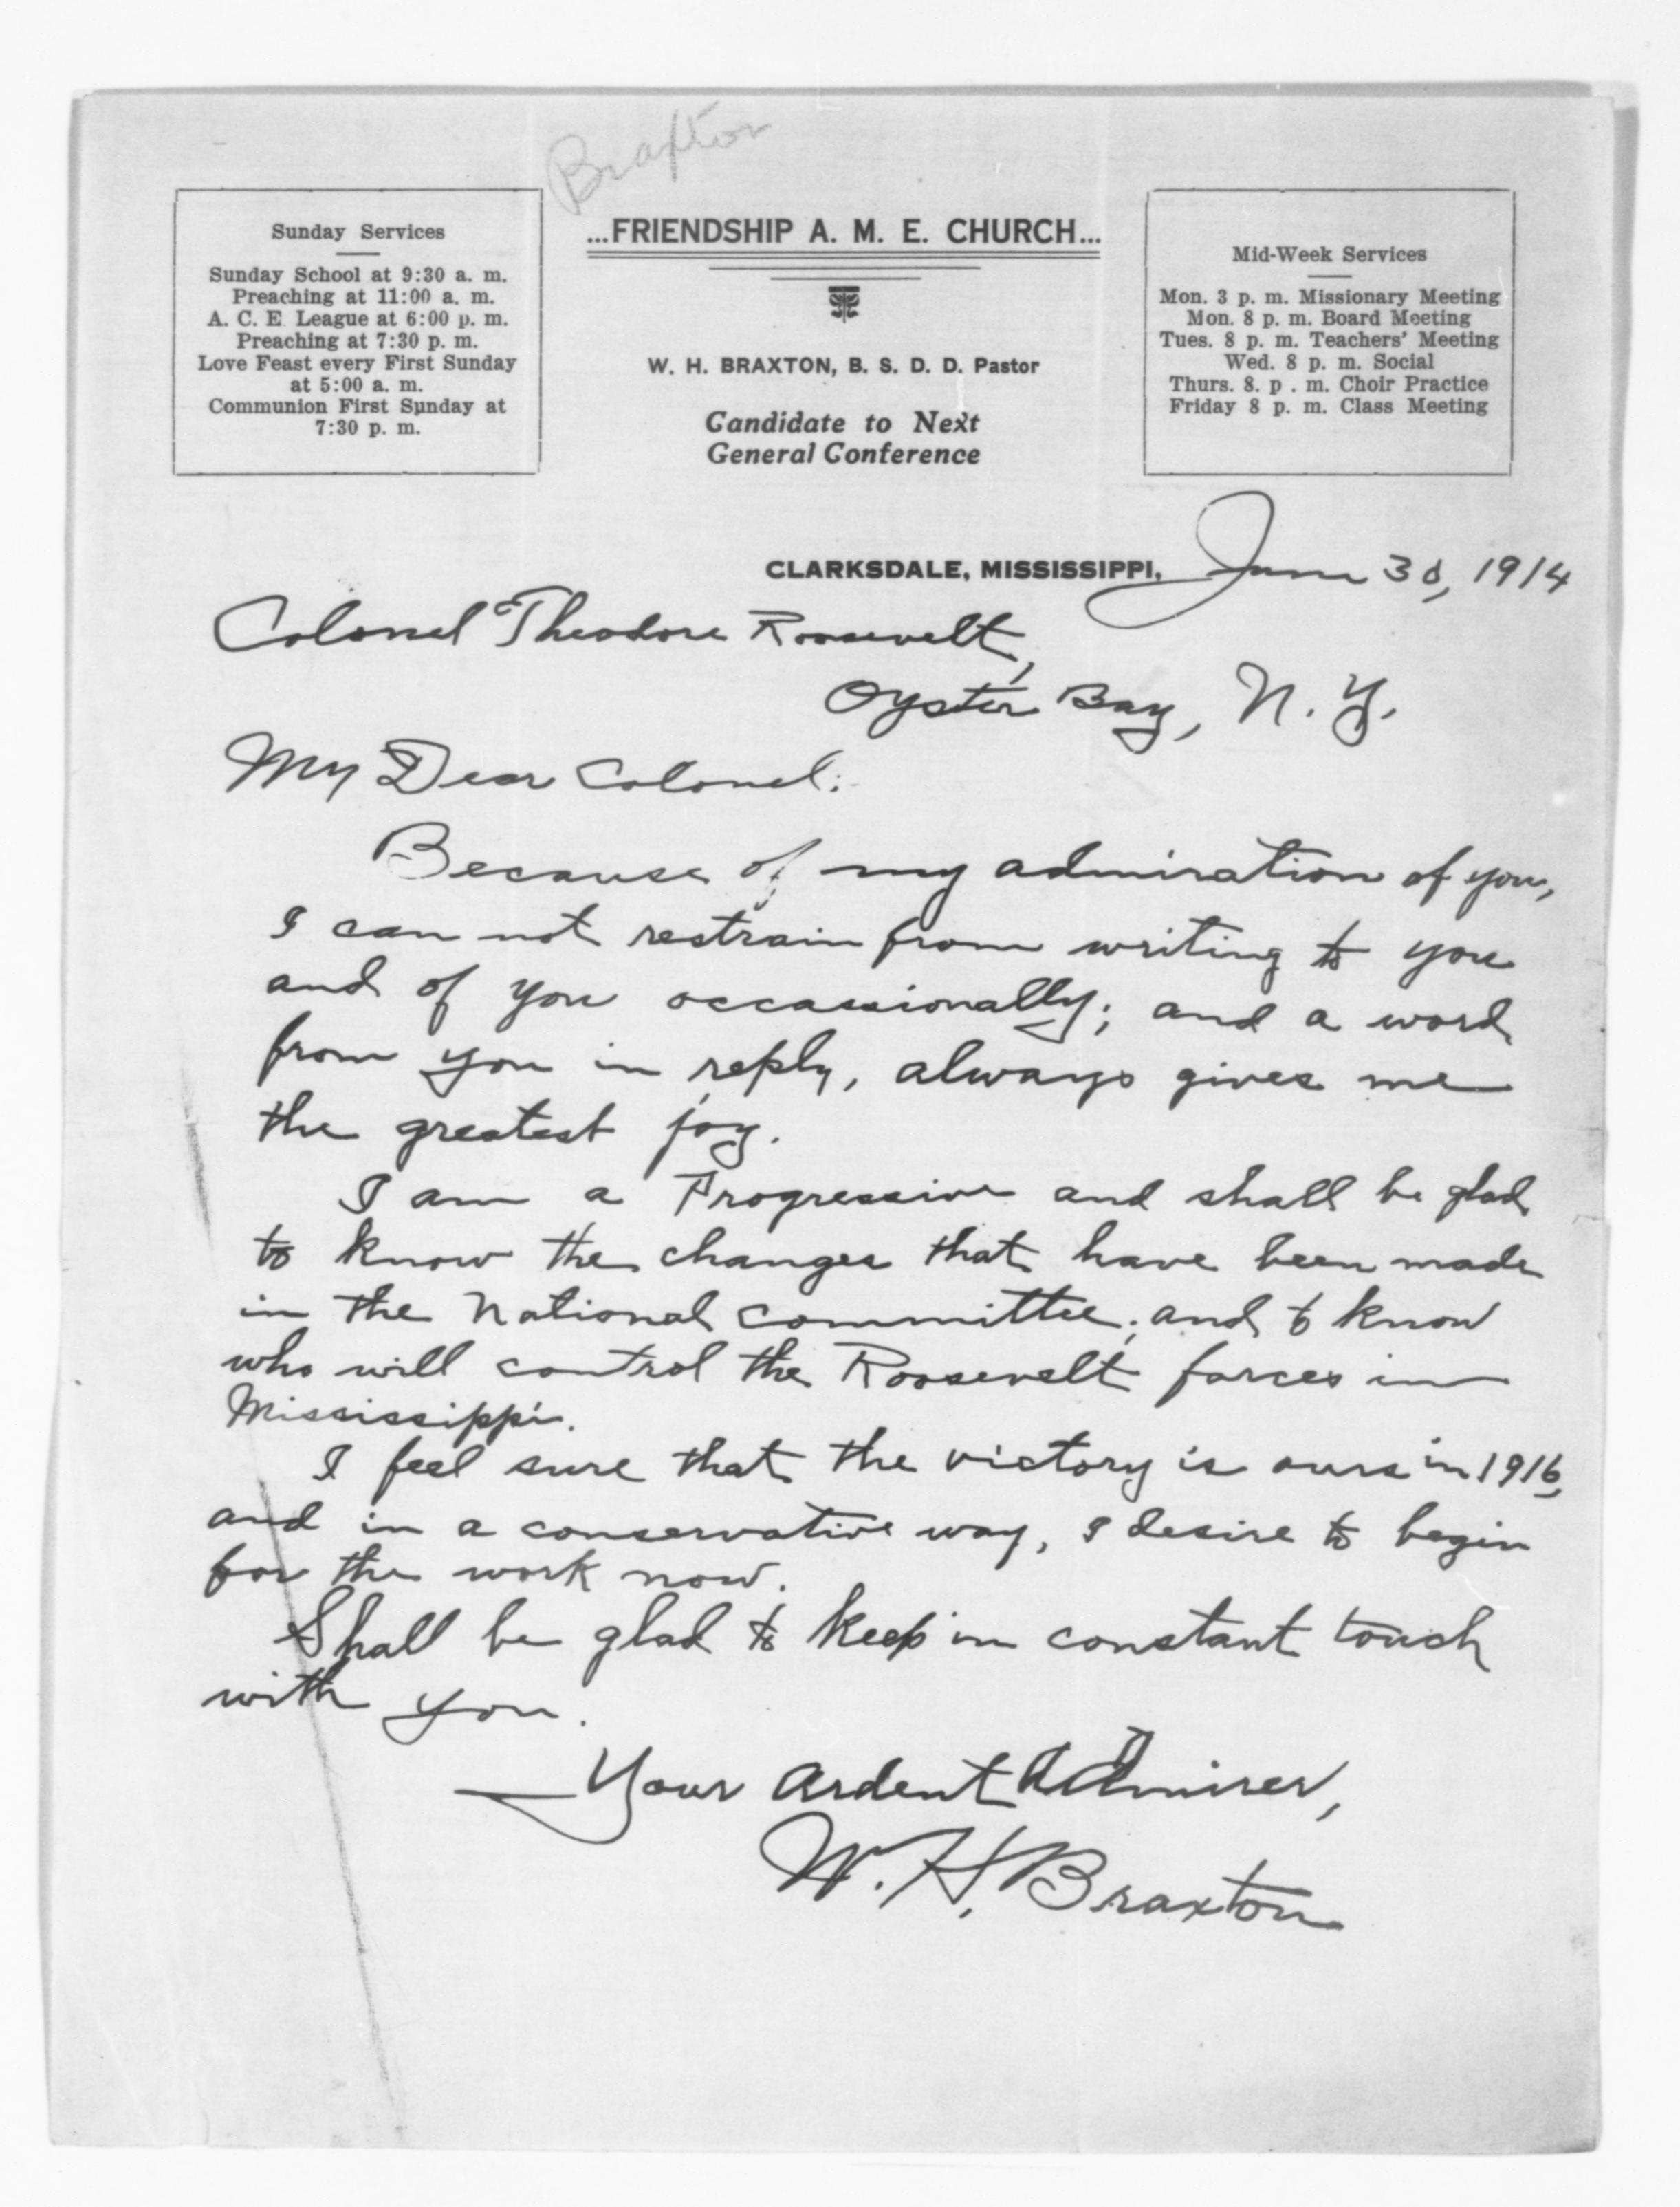 Braxton
Sunday Services
Sunday School at 9:30 a. m.
Preaching at 11:00 a. m.
A. C. E League at 6:00 p. m.
Preaching at 7:30 p. m.
Love Feast every First Sunday
at 5:00 a. m.
Communion First Sunday at
7:30 p. m.
...FRIENDSHIP A. M. E. CHURCH...
W. H. BRAXTON, B. S. D. D. Pastor
Candidate to Next
General Conference
Mid-Week Services
Mon. 3 p. m. Missionary Meeting
Mon. 8 p. m. Board Meeting
Tues. 8 p. m. Teachers' Meeting
Wed. 8 p. m. Social
Thurs. 8. p . m. Choir Practice
Friday 8 p. m. Class Meeting
CLARKSDALE, MISSISSIPPI, June 30, 1914
Colonel Theodore Roosevelt,
Oyster Bay, N. Y.
My Dear Colonel:
Because of my admiration of you,
I can not restrain from writing to you
and of you occassionally; and a word
from you in reply, always gives me
the greatest joy.
I am a Progressive and shall be glad
to know the changes that have been made
in the National Committee; and to know
who will control the Roosevelt forces in
Mississippi.
I feel sure that the victory is ours in 1916,
and in a conservative way, I desire to begin
for the work now.
Shall be glad to keep in constant touch
with you.
Your Ardent Admirer,
W. H. Braxton